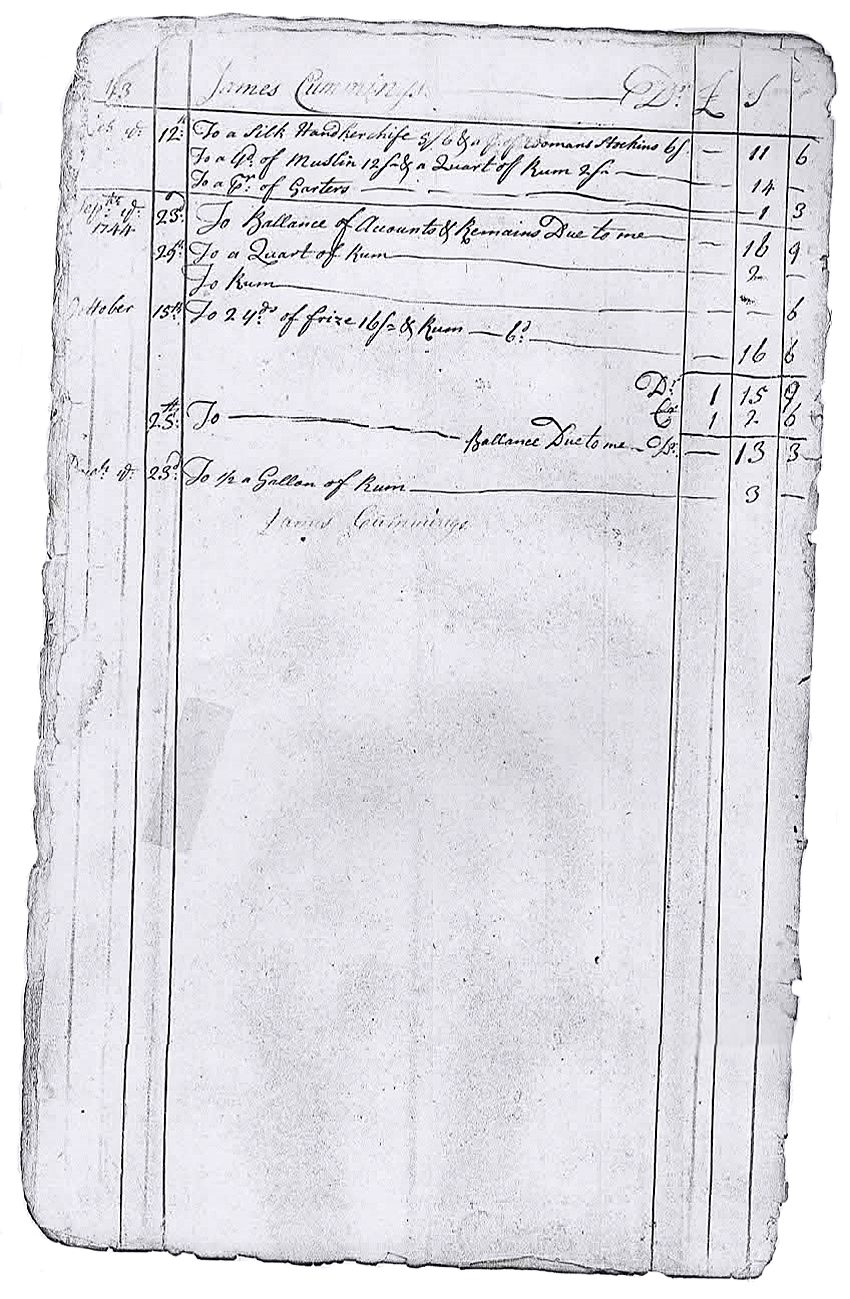 43 James Cummings Dr. £ S
12th To a Silk Handkerchife 5/6 & a pr. of Womans Stockins 6/ — 11 6
To a Yd. of Muslin 12/ & a Quart of Rum 2/ — 14 —
To a Pr. of Garters — 1 3
Septbr. ye. 23d. To Ballance of Acounts & Remains Due to me — 16 9
1744
29th To a Quart of Rum — 2 —
To Rum — — 6
October 15th To 2 yds of frize 16/ & Rum — 6d. — 16 6
Dr. 1 15 9
Cr. 1 2 6
25th To — Ballance Due to me — — 13 3
ye. 23d To 1/2 a Gallon of Rum — 3 —
James Cummings